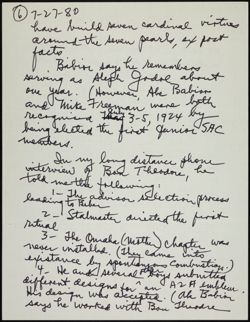 (6) 7-27-80
have build seven cardinal virtues
around the seven pearls, ex post
facto
Babior says he remembers
serving as Aleph Godol about
one year. (However, Abe Babior
and Mike Freeman were both
recognized 3-5, 1924 by
being elected the first Junior SAC
members.
In my long distance phone
interview of Ben Theodore, he
told me the following:
1- The advisor selection process
leading to
2- Stalmaster devised the first
ritual
3- The Omaha (Mother) chapter was
never installed. (They came into
existance by spontaneous combustion.)
4- He and several boys submitted
different designs for an AZA emblem.
His design was accepted. (Abe Babior
says he worked with Ben Theodore